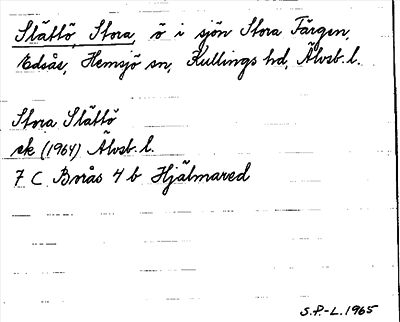 Slättö, Stora, ö i sjön Stora Färgen,
Edsås, Hemsjö sn, Kullings hd, Älvsb. l.
Stora Slättö
ek (1964) Älvsb. l.
7 C Borås 4 b Hjälmared
S.P.-L. 1965